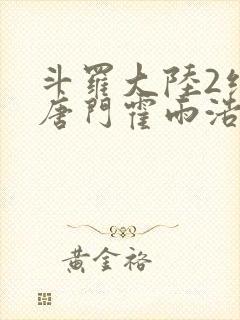 斗羅大陸2
唐門霍雨浩
黃金裕